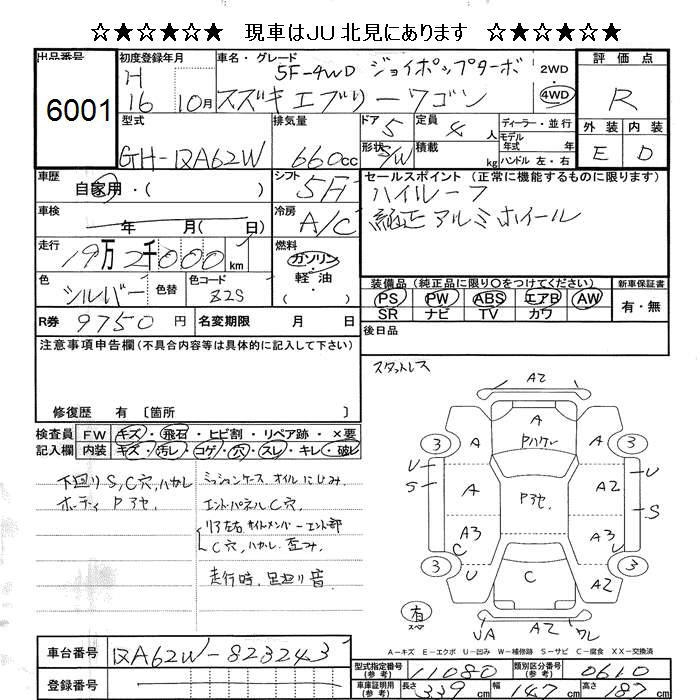 ☆★☆★☆★ 現車はJU北見にあります ☆★☆★☆★
出品番号 6001
初度登録年月 H 16 10月
車名・グレード 5F-4WD ジョイポップターボ
スズキエブリーワゴン
2WD 4WD
評価点 R
外装 内装
E D
型式 GH-DA62W
排気量 660cc
ドア 5
形状 S/W
定員 4人
積載 kg
ディーラー・並行
モデル年式 年式
ハンドル 左・右
車歴 自家用・( )
シフト 5F
車検 年 月( 日)
冷房 A/C
走行 19万2千000km
燃料 ガソリン・軽油・
色 シルバー 色替
色コード Z2S
R券 9750円 名変期限 月 日
セールスポイント (正常に機能するものに限ります)
ハイルーフ
純正アルミホイール
装備品(純正品に限り○をつけてください) 新車保証書
PS PW ABS エアB AW 有・無
SR ナビ TV カワ
後日品
注意事項申告欄(不具合内容等は具体的に記入して下さい)
修復歴 有 〔箇所 〕
検査員記入欄
FW キズ・飛石・ヒビ割・リペア跡・×要
内装 キズ・汚レ・コゲ・穴・スレ・キレ・破レ
下回りS,C穴,ハガレ
ボディ Pアセ
ミッションケース オイルにじみ
エンドパネルC穴
リア左右サイドメンバーエンド部
C穴,ハガレ,歪み,
走行時,足廻り音
スタットレス
A2
A
Pハゲレ
3 A 3
U S A Pアセ A2 U S
A3 A3 U
C
3 U C A2 3
有 スペア
UA A2 ワレ
A-キズ E-エクボ U-凹み W-補修跡 S-サビ C-腐食 XX-交換済
車台番号 DA62W-823243
登録番号
型式指定番号(参考) 11080 類別区分番号(参考) 0610
車庫証明用(参考) 長さ 339 幅 147cm 高さ 187cm